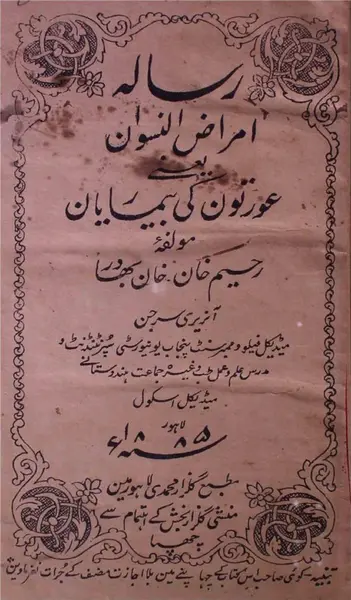 رساله
امراض النسوان
یعنے
عورتون کی بیماریان
مولفۂ
رحیم خان۔ خان بہادر
آنریری سرجن
میڈیکل فیلو و ممبر سنٹ پنجاب یونیورسٹی سپرنٹنڈنٹ و
مدرس علم و عمل طب وغیرہ جماعت ہندوستانی
میڈیکل اسکول
لاہور
۱۸۸۵ء
مطبع گلزار محمدی لاہور مین
منشی گلزار بخش کے اہتمام سے
چھپا
تنبیہ۔ کوئی صاحب اس کتاب کے چھاپنے مین بلا اجازت مصنف کے جرات نفرماوین